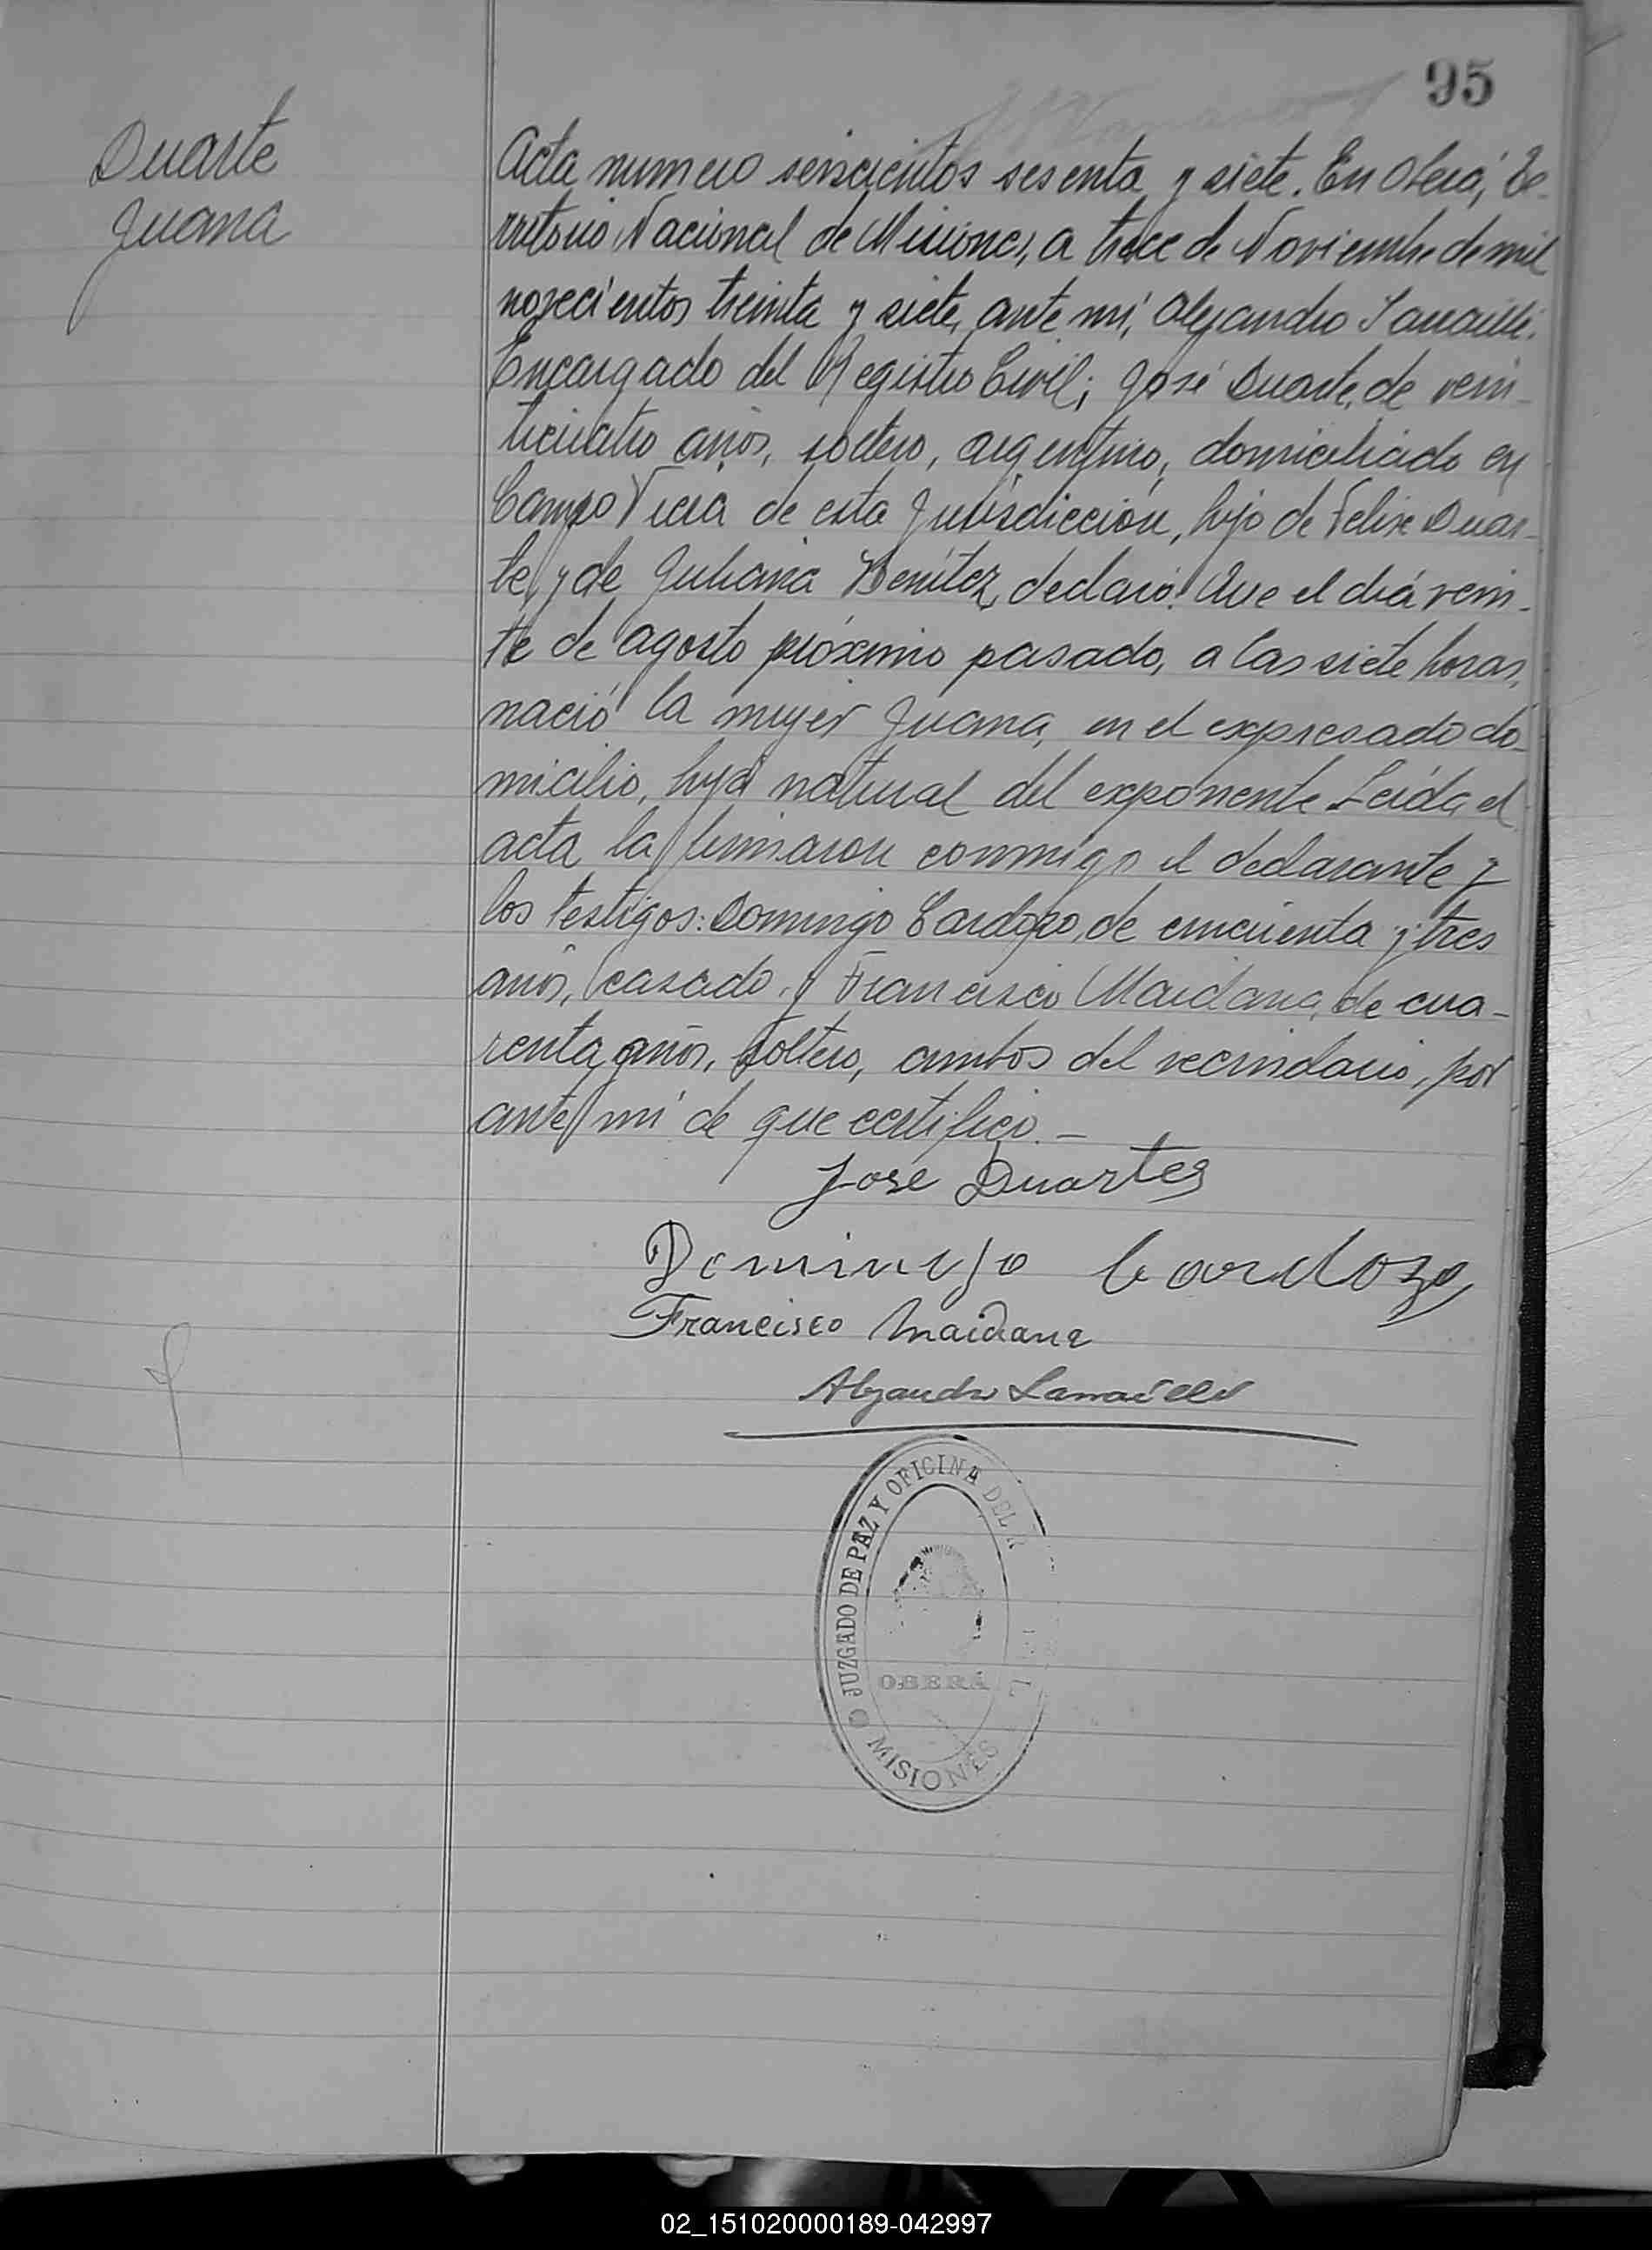 95
Duarte
Juana
Acta numero seiscientos sesenta y siete. En Oberá, Te-
rritorio Nacional de Misiones, a trece de Noviembre de mil
novecientos treinta y siete, ante mí, Alejandro
Encargado del Registro Civil; José Duarte, de vein-
ticuatro años, soltero, argentino, domiciliado en
Campo Viera de esta Jurisdicción, hijo de Felix Duar-
te, y de Juliana Benítez, declaró: Que el día vein-
te de agosto próximo pasado, a las siete horas,
nació la mujer Juana, en el expresado do-
micilio, hija natural del exponente Leída el
acta la firmaron conmigo el declarante y
los testigos: Domingo Cardozo, de cincuenta y tres
años, casado, y Francisco Maidana, de cua-
renta años, soltero, ambos del vecindario, por
ante mí de que certifico. -
Jose Duartes
Domingo Cardozo
Francisco Maidana
Alejandro
JUZGADO DE PAZ Y OFICINA DEL R
OBERÁ
MISIONES
02_151020000189-042997